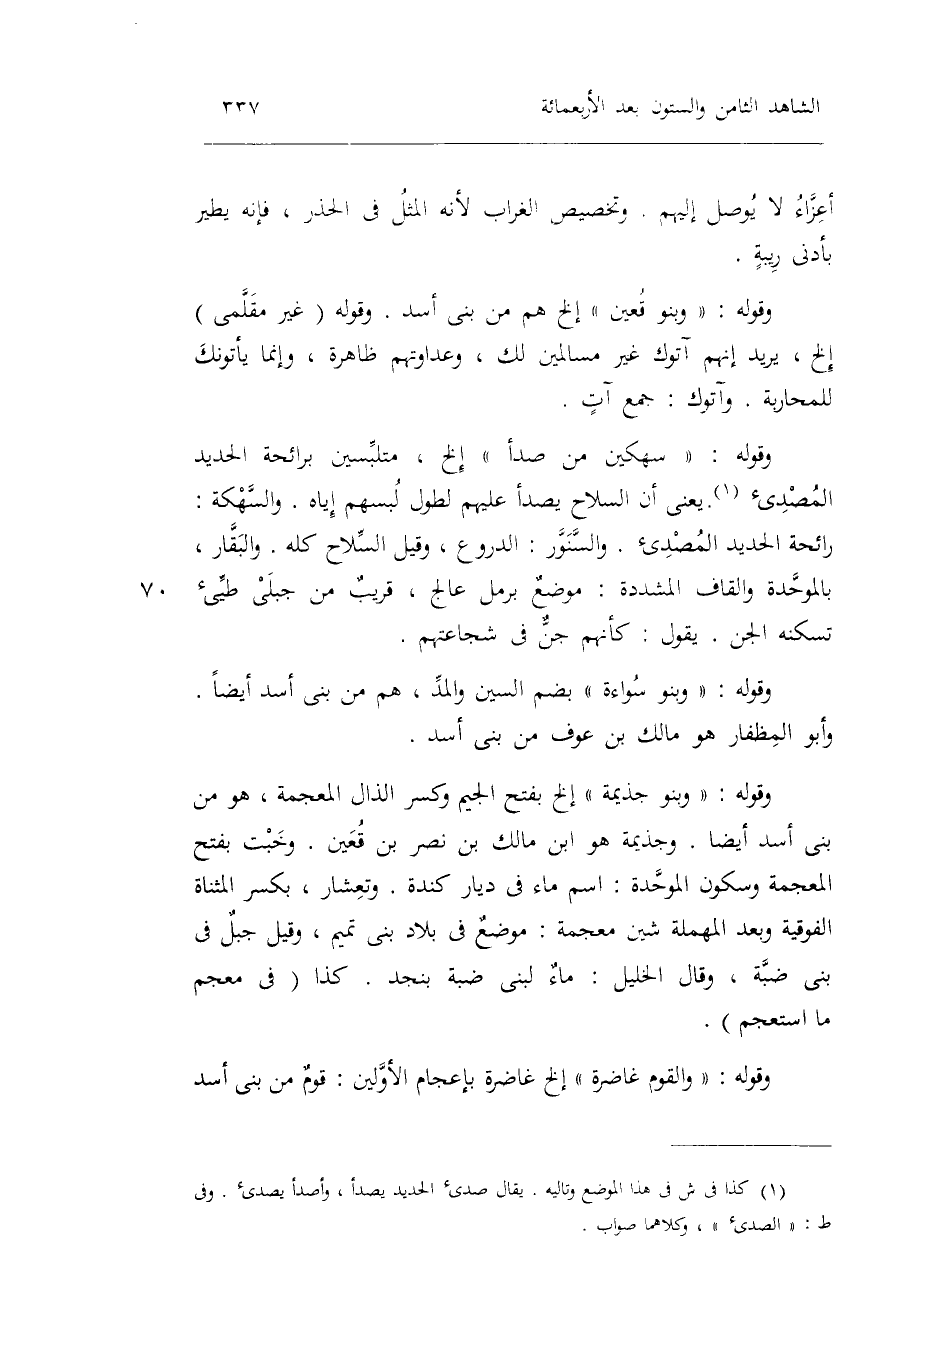 الشاهد الثامن والستون بعد الأربعمائة ٣٣٧
أعِزَّاءُ لا يُوصل إليهم . وتخصيص الغراب لأنه المثلُ فى الحذر ، فإنه يطير
بأدنى رِيبةٍ .
وقوله : « وبنو قُعين » إلخ هم من بنى أسد . وقوله ( غير مقَلَّمى )
إلخ ، يريد إنهم آتوك غير مسالمين لك ، وعداوتهم ظاهرة ، وإنما يأتونكَ
للمحاربة . وآتوك : جمع آتٍ .
وقوله : « سهكين من صدأ » إلخ ، متلبِّسين برائحة الحديد
المُصْدِىء (١). يعنى أن السلاح يصدأ عليهم لطول لُبسهم إياه . والسَّهْكة :
رائحة الحديد المُصْدِىء . والسَّنَوَّر : الدروع ، وقيل السِّلاح كله . والبَقَّار ،
بالموحَّدة والقاف المشددة : موضعٌ برمل عالج ، قريبٌ من جبلَىْ طيِّىء ٧٠
تسكنه الجن . يقول : كأنهم جنٌّ فى شجاعتهم .
وقوله : « وبنو سُواءة » بضم السين والمدِّ ، هم من بنى أسد أيضاً .
وأبو المِظفار هو مالك بن عوف من بنى أسد .
وقوله : « وبنو جذيمة » إلخ بفتح الجيم وكسر الذال المعجمة ، هو من
بنى أسد أيضا . وجذيمة هو ابن مالك بن نصر بن قُعَين . وخَبْت بفتح
المعجمة وسكون الموحَّدة : اسم ماء فى ديار كندة . وتعِشار ، بكسر المثناة
الفوقية وبعد المهملة شين معجمة : موضعٌ فى بلاد بنى تميم ، وقيل جبلٌ فى
بنى ضبَّة ، وقال الخليل : ماءٌ لبنى ضبة بنجد . كذا ( فى معجم
ما استعجم ) .
وقوله : « والقوم غاضرة » إلخ غاضرة بإعجام الأوَّلين : قومٌ من بنى أسد
(١) كذا فى ش فى هذا الموضع وتاليه . يقال صدىء الحديد يصدأ ، وأصدأ يصدىء . وفى
ط : « الصدىء » ، وكلاهما صواب .